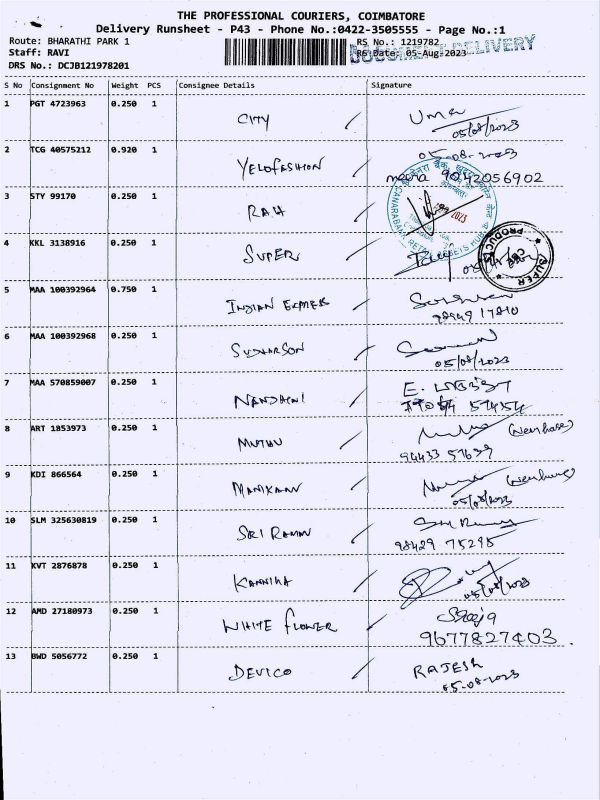 THE PROFESSIONAL COURIERS, COIMBATORE
Delivery Runsheet - P43 - Phone No.:0422-3505555 - Page No.:1
Route: BHARATHI PARK 1 RS No.: 1219782
Staff: RAVI RS Date: 05-Aug-2023
DELIVERY
DRS No.: DCJB121978201
S No Consignment No Weight PCS Consignee Details Signature
1 PGT 4723963 0.250 1 CITY Uma
05/08/2023
2 TCG 40575212 0.920 1 YELOFASHION 05-08-2023
meera 9042056902
3 STY 99170 0.250 1 RAH
4 KKL 3138916 0.250 1 SUPER
SUPER PRODUCTS CBE
5 MAA 100392964 0.750 1 INDIAN EXPRESS
98949 17810
6 MAA 100392968 0.250 1 SUDHARSON
05/08/2023
7 MAA 570859007 0.250 1 NANDHINI E.
57454
8 ART 1853973 0.250 1 MUTHU
94433 57639
9 KDI 866564 0.250 1 MANIKAAN
05/08/2023
10 SLM 325630819 0.250 1 SRI RAMAN
98429 75295
11 KVT 2876878 0.250 1 KANNIKA
05/08/2023
12 AMD 27180973 0.250 1 WHITE FLOWER
9677827403
13 BWD 5056772 0.250 1 DEVICO RAJESH
05-08-2023